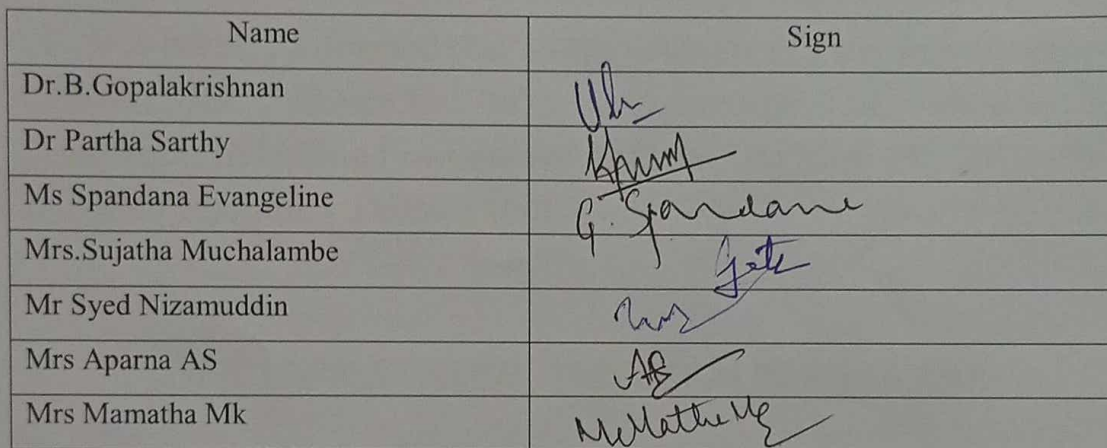 Name Sign
Dr.B.Gopalakrishnan
Dr Partha Sarthy
Ms Spandana Evangeline G. Spandana
Mrs.Sujatha Muchalambe
Mr Syed Nizamuddin
Mrs Aparna AS
Mrs Mamatha Mk